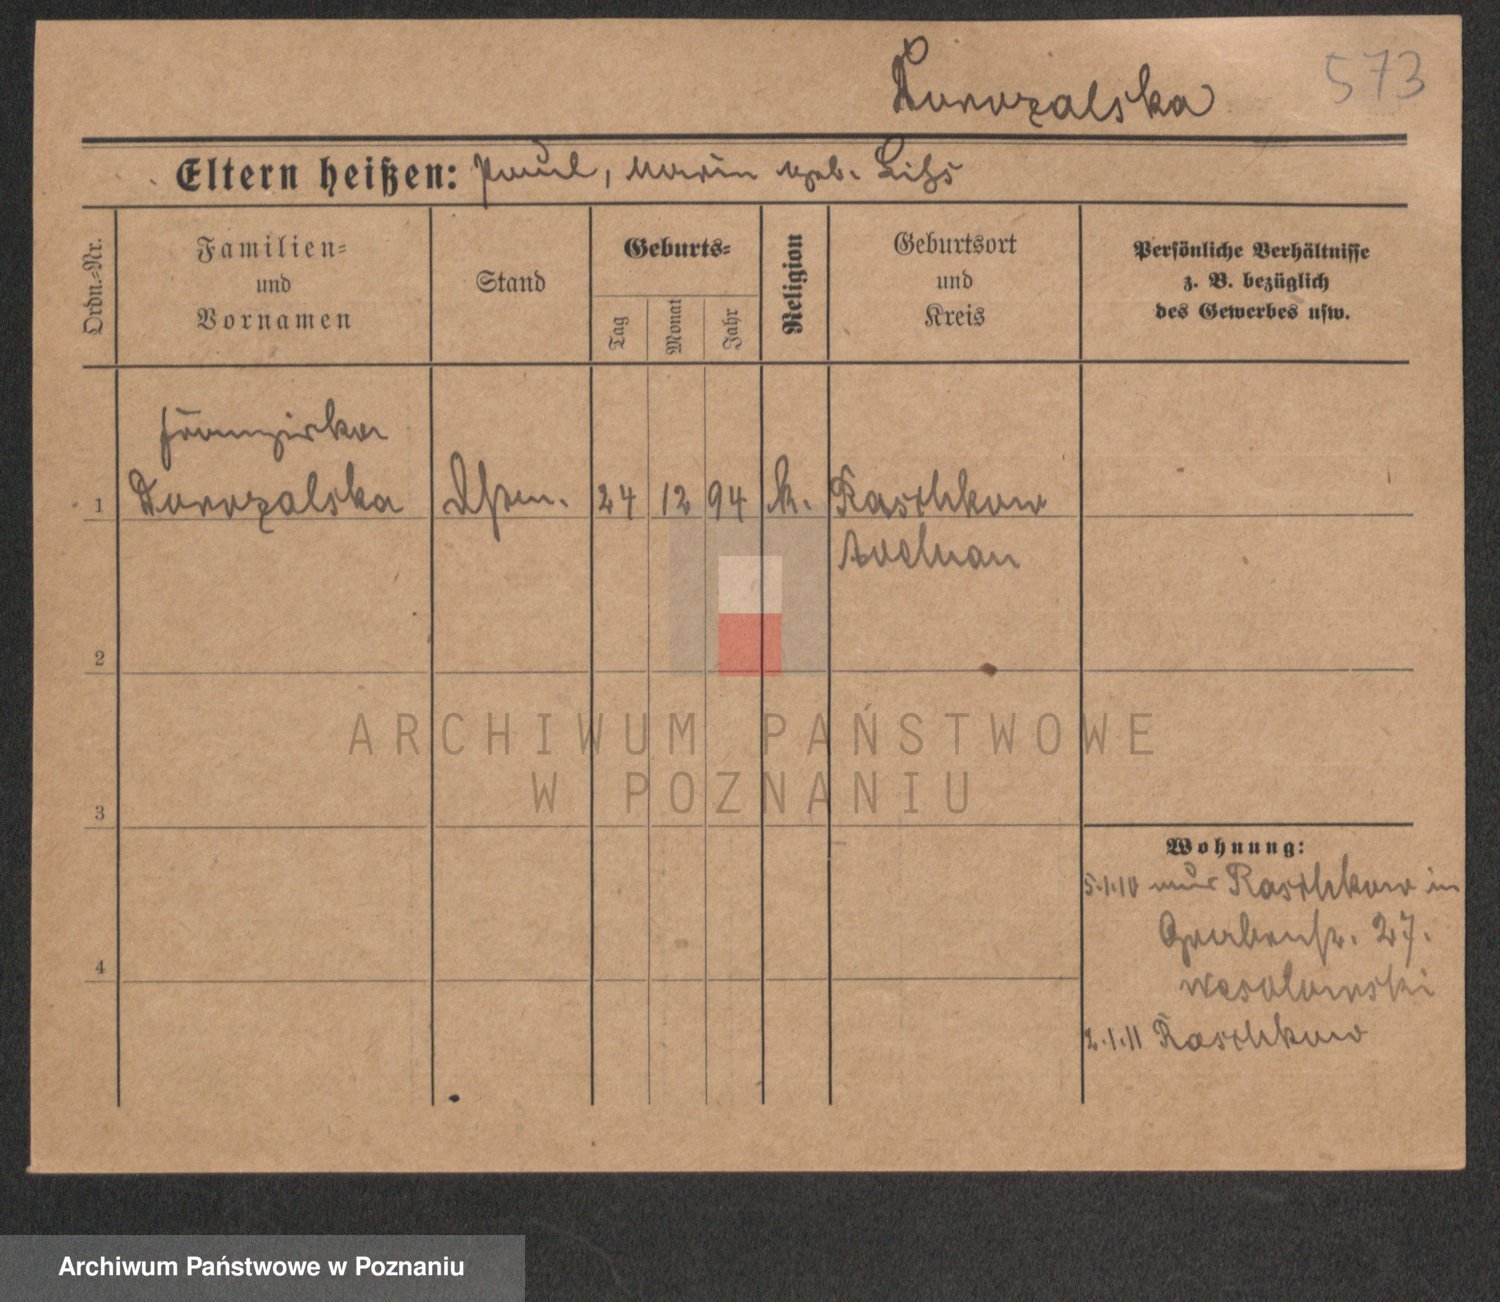 Dorozalska
573
Eltern heißen: Paul, Marie geb.
Ordn.-Nr.
Familien-
und
Vornamen
Stand
Geburts-
Tag
Monat
Jahr
Religion
Geburtsort
und
Kreis
Persönliche Verhältnisse
z. B. bezüglich
des Gewerbes usw.
Franziska
1 Dorozalska 24 12 94 k. Raschkow
Adelnau
2
ARCHIWUM PAŃSTWOWE
W POZNANIU
3
4
Wohnung:
5.1.10 Raschkow in
Grabenstr. 27.
Wesolowski
2.1.11 Raschkow
Archiwum Państwowe w Poznaniu